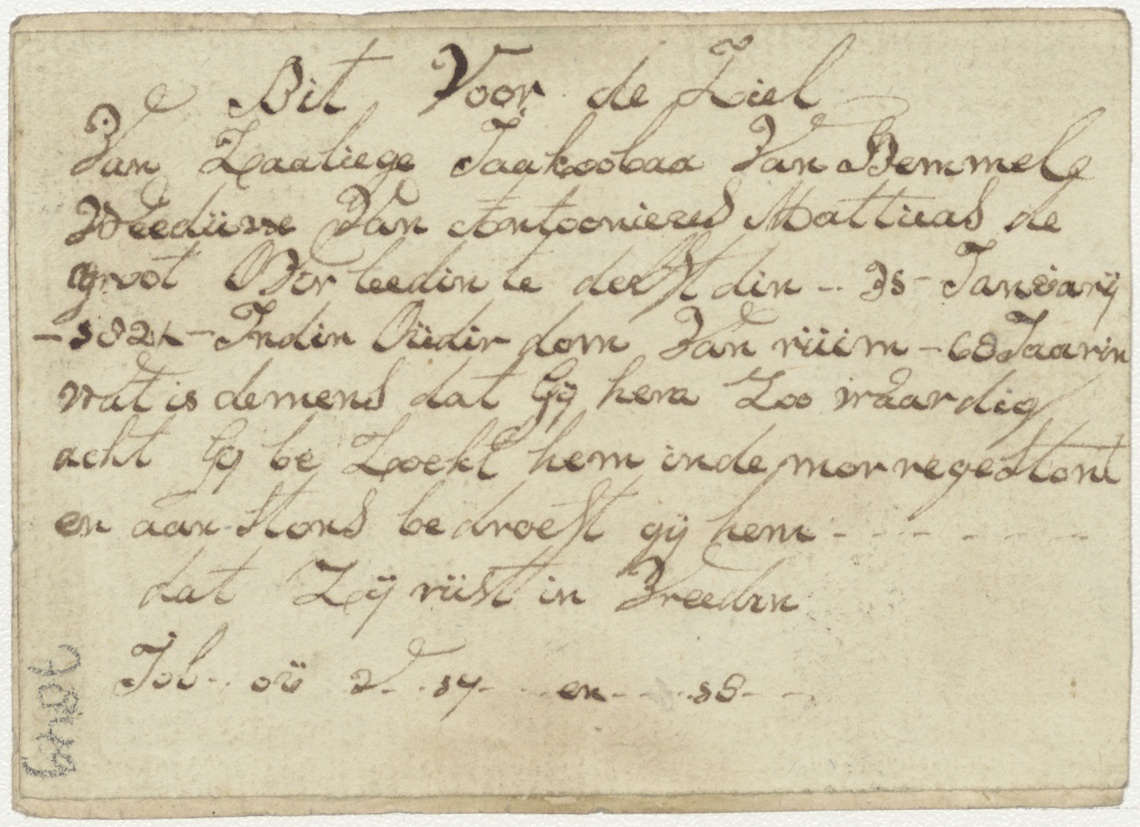 Bit Voor de Ziel
Van Zaaliege Jaakoobaa Van Bemmel
Weeduwe Van Antooniees Mattieas de
groot Over leedin te delft din - 35 - Januarij
- 1824 - Indin Oudir dom Van ruim - 68 Jaarin
wat is demens dat Gij hem Zoo waardig
acht Gij be Zoekt hem inde morregestont
en aan stons be droeft gij hem - - - - - -
dat Zij rust in Vreedin
Job - - V - 17 - en - - 18 - -
groot